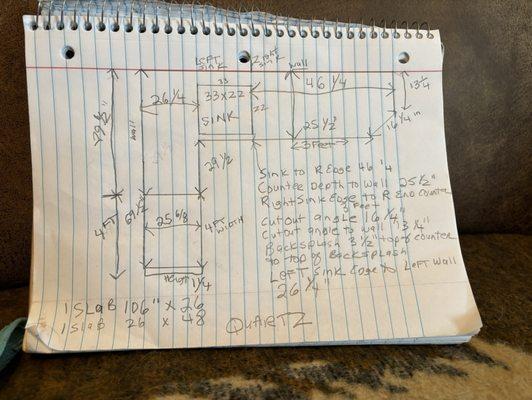 LEFT SINK
RIGHT SINK
Wall
33
46 1/4
26 1/4
33x22
22
SINK
13 1/4
16 1/4 in
25 1/2"
3 Feet
Wall
29 1/2
4 FT
25 6/8
4 FT WIDTH
Height
1 1/4
Sink to R Edge 46 "4
Counter Depth to Wall 25 1/2"
Right Sink Edge to R End Counter
3 Feet
Cutout angle 16 1/4"
Cutout angle to wall 13 1/4"
Backsplash 3 1/2" top of counter
to top of Backsplash
Left Sink Edge to Left Wall
26 1/4"
1 SLAB 106" x 26
1 SLAB 26 x 48
QUARTZ